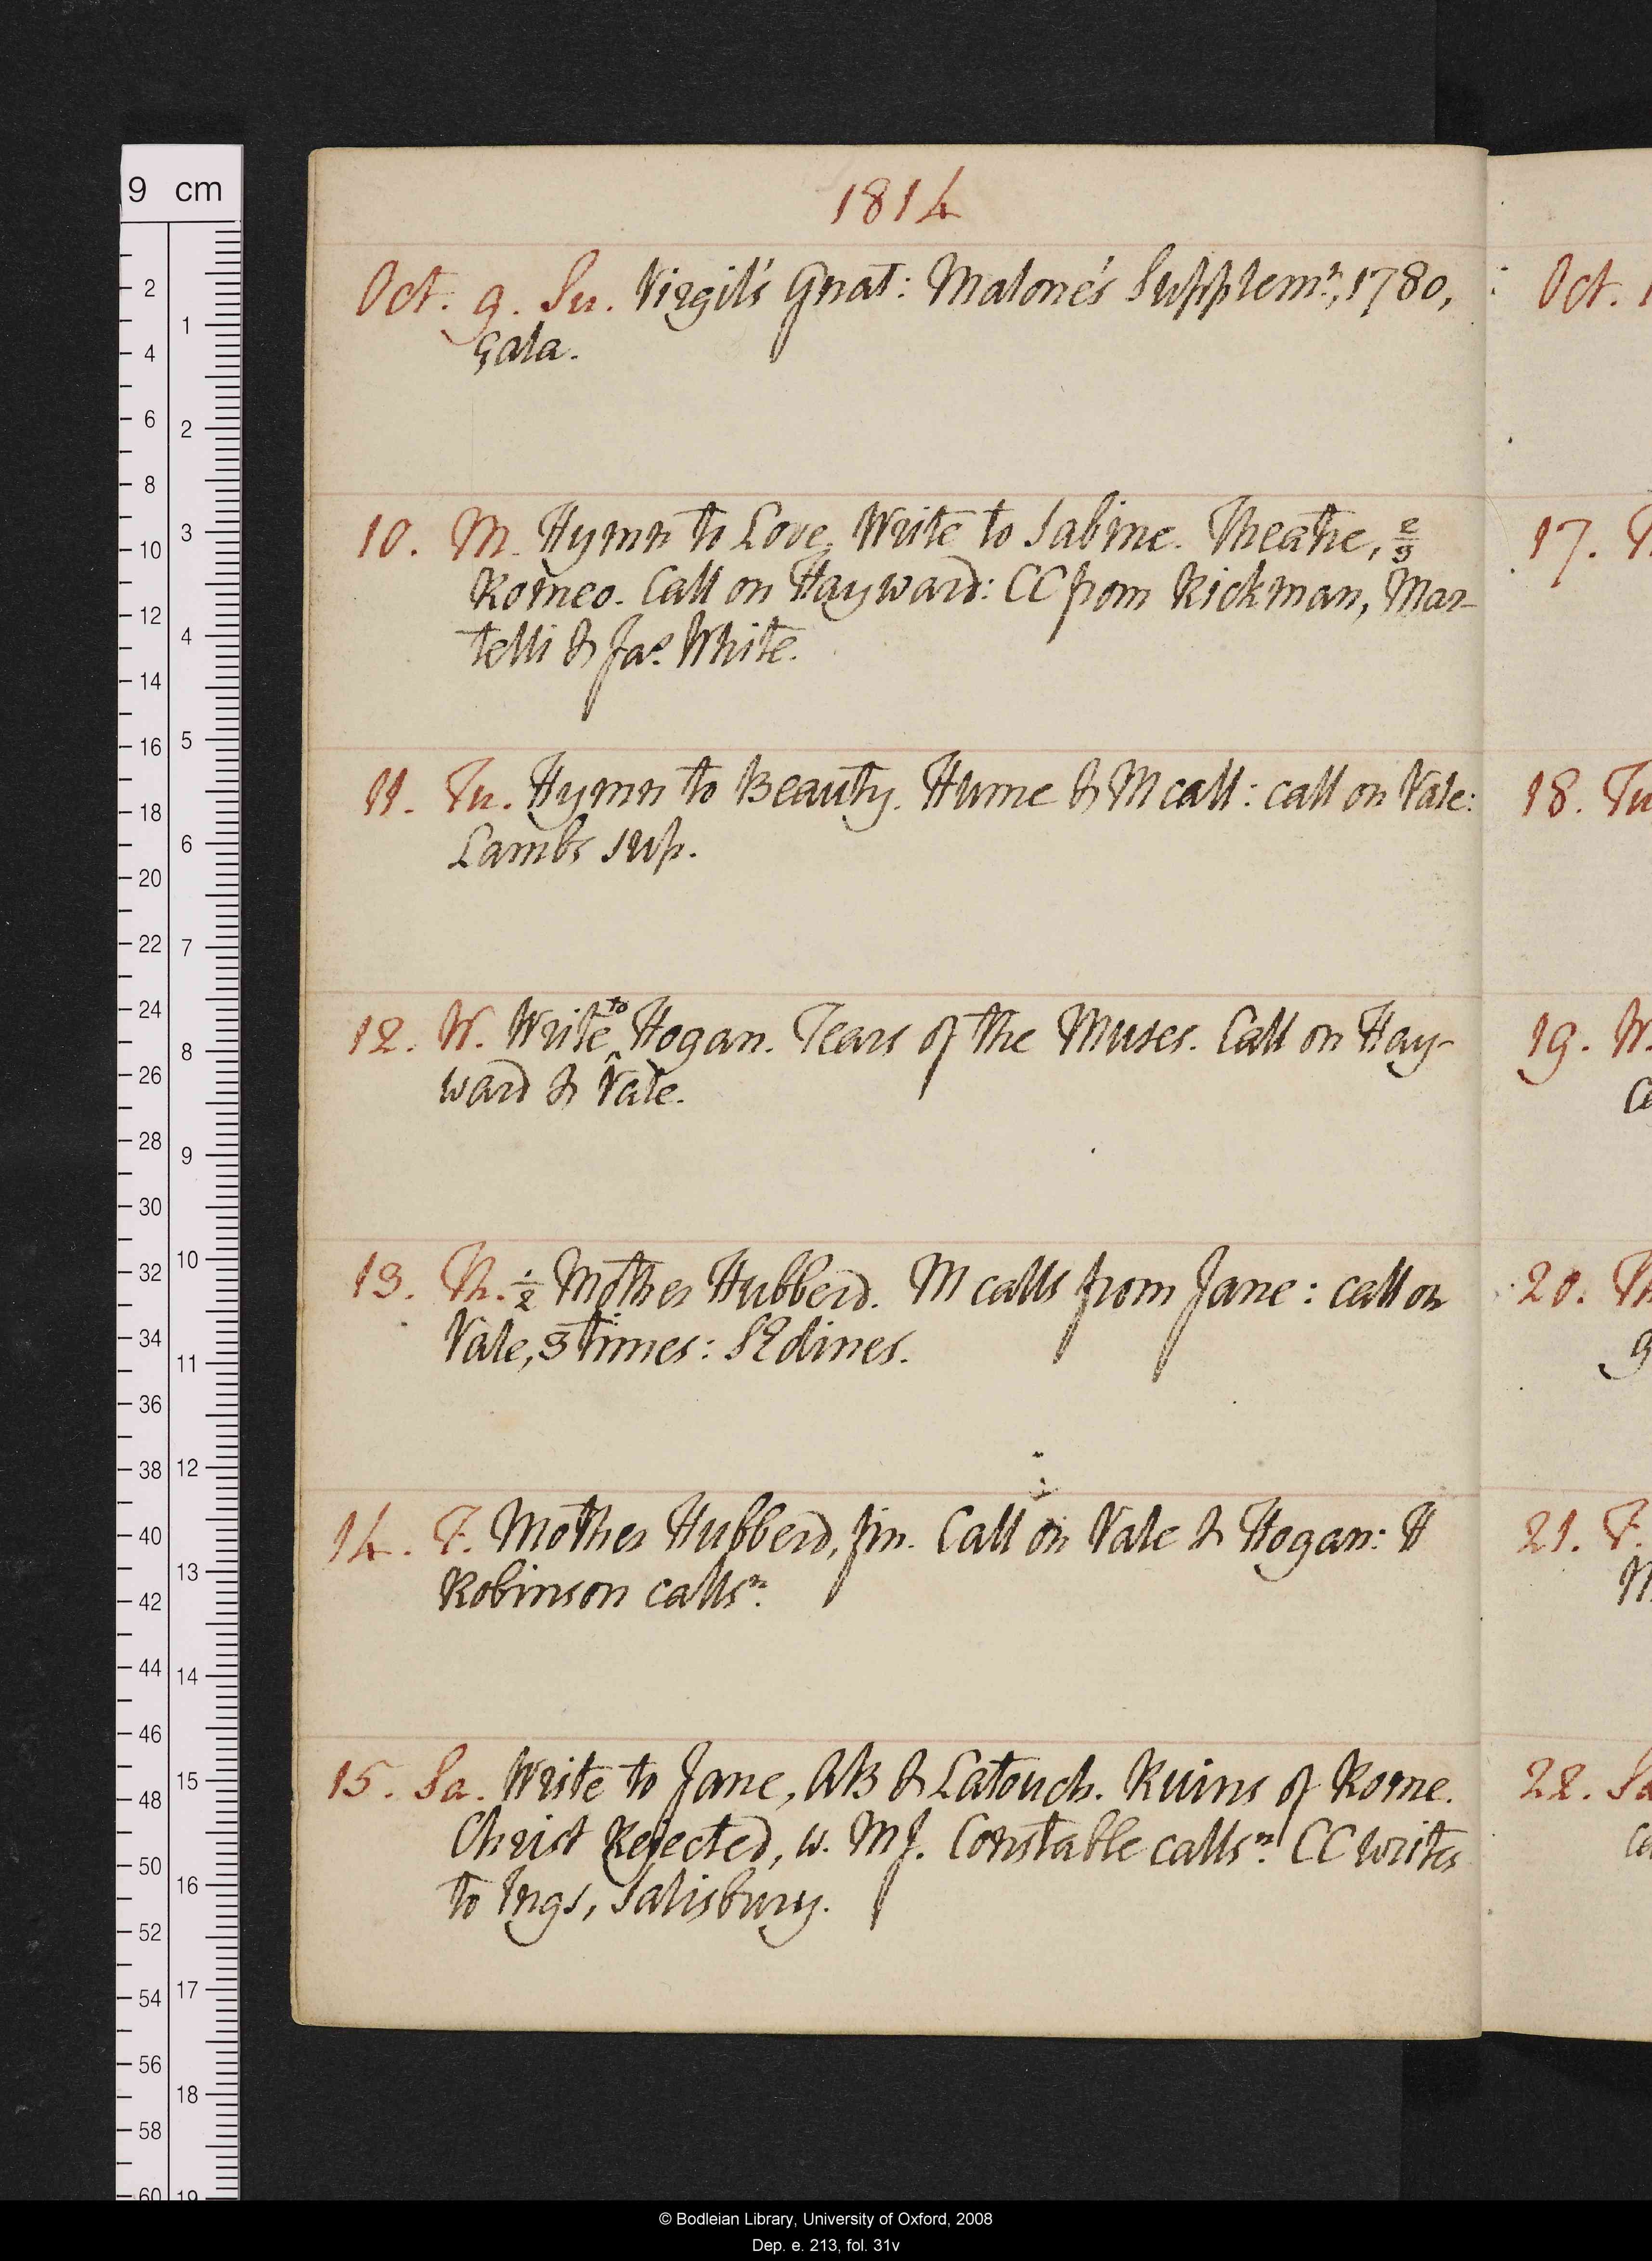 1814
Oct. 9. Su. Virgil's Gnat: Malone's Supplemᵗ, 1780,
çala.
10. M. Hymn to Love. Write to Sabine. Theatre, 2/3
Romeo. Call on Hayward: CC from Rickman, Mar-
telli & Jas. White.
11. Tu. Hymn to Beauty. Hume & M call: call on Vale:
Lambs sup.
12. W. Write to Hogan. Tears of the Muses. Call on Hay-
ward & Vale.
13. Th. ½ Mother Hubberd. M calls from Jane: call on
Vale, 3 times: SE dines.
14. F. Mother Hubberd, fin. Call on Vale & Hogan: H
Robinson callsⁿ.
15. Sa. Write to Jane, AB & Latouch. Ruins of Rome.
Christ Rejected, w. MJ. Constable callsⁿ. CC writes
to Ings, Salisbury.
Oct. 1
17. T
18. Tu
19. W.
Ca
20. Th
g
21. F.
22. Sa
9 cm
2
4
6
8
10
12
14
16
18
20
22
24
26
28
30
32
34
36
38
40
42
44
46
48
50
52
54
56
58
60
1
2
3
4
5
6
7
8
9
10
11
12
13
14
15
16
17
18
19
© Bodleian Library, University of Oxford, 2008
Dep. e. 213, fol. 31v